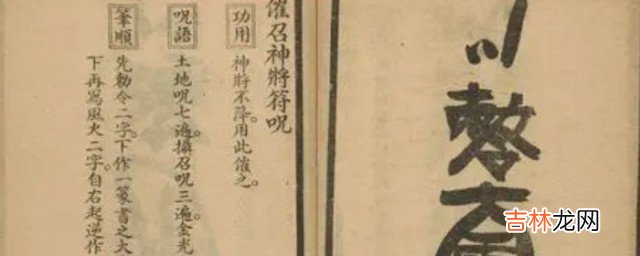 催召神將符咒
功用
神將不降。用此催之。
咒語
土地咒七遍。攝召咒三遍。金光
筆順
先勅令二字。下作一篆書之大
下再寫風火二字。自右起逆作
吉林龙网